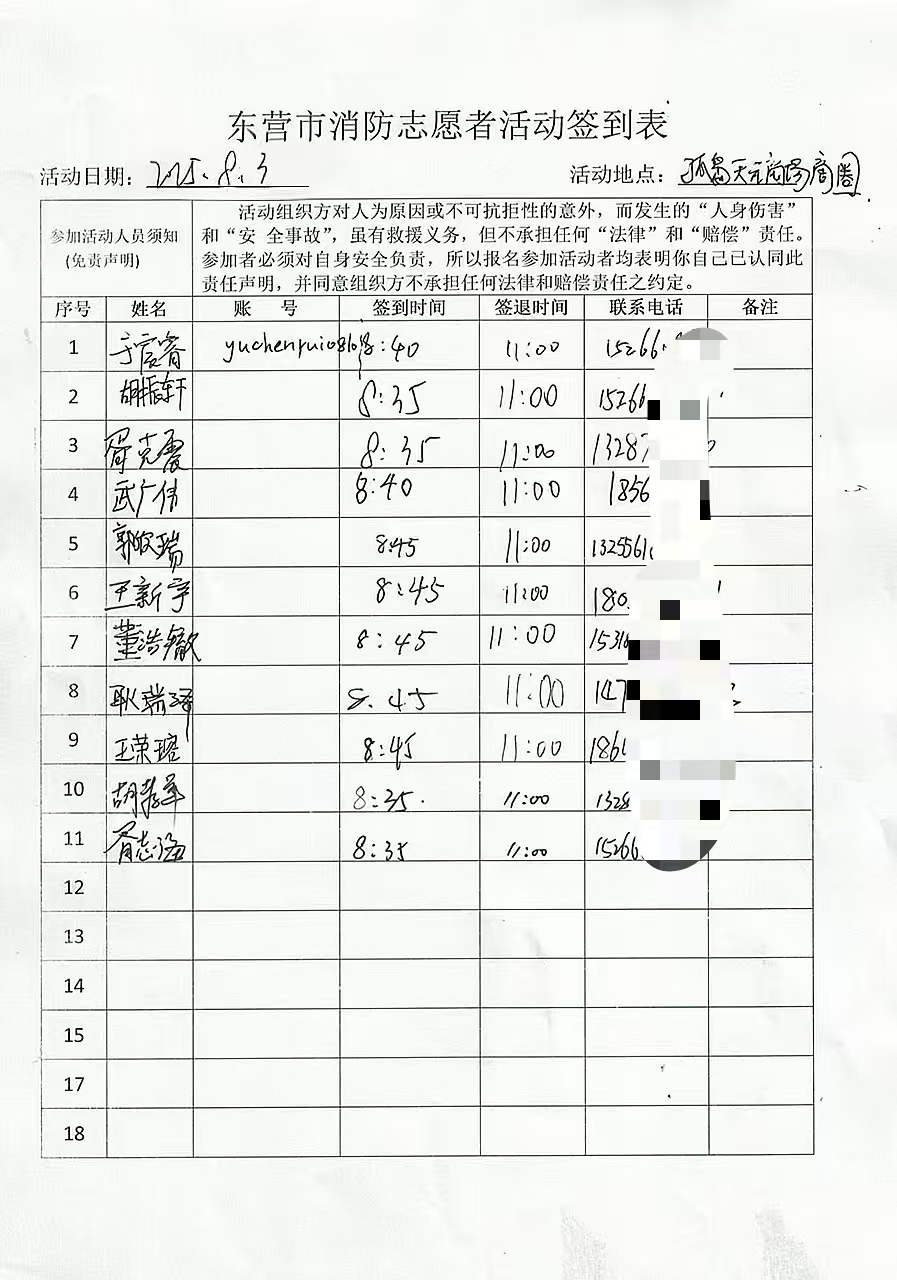 东营市消防志愿者活动签到表
活动日期: 2025.8.3 活动地点: 孤岛天元商场商圈
参加活动人员须知
(免责声明)
活动组织方对人为原因或不可抗拒性的意外，而发生的“人身伤害”
和“安 全事故”，虽有救援义务，但不承担任何“法律”和“赔偿”责任。
参加者必须对自身安全负责，所以报名参加活动者均表明你自己已认同此
责任声明，并同意组织方不承担任何法律和赔偿责任之约定。
序号 姓名 账 号 签到时间 签退时间 联系电话 备注
1 于宸睿 yuchenrui0816 8:40 11:00 15266
2 胡振轩 8:35 11:00 15266
3 胥克震 8:35 11:00 13287
4 武广伟 8:40 11:00 1856
5 郭皎瑞 8:45 11:00 1325561
6 王新宇 8:45 11:00 180
7 董浩 8:45 11:00 15316
8 耿瑞泽 8:45 11:00 147
9 王荣瑢 8:45 11:00 1861
10 胡 8:35 11:00 1328
11 胥志海 8:35 11:00 15266
12
13
14
15
16
17
18